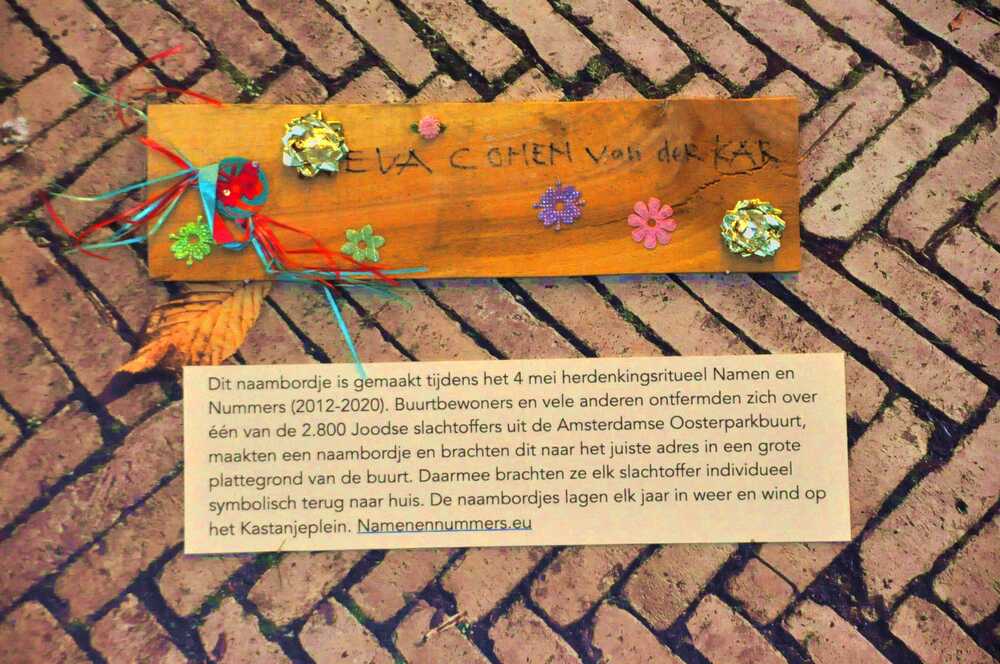 EVA COHEN van der KAR
Dit naambordje is gemaakt tijdens het 4 mei herdenkingsritueel Namen en
Nummers (2012-2020). Buurtbewoners en vele anderen ontfermden zich over
één van de 2.800 Joodse slachtoffers uit de Amsterdamse Oosterparkbuurt,
maakten een naambordje en brachten dit naar het juiste adres in een grote
plattegrond van de buurt. Daarmee brachten ze elk slachtoffer individueel
symbolisch terug naar huis. De naambordjes lagen elk jaar in weer en wind op
het Kastanjeplein. Namenennummers.eu